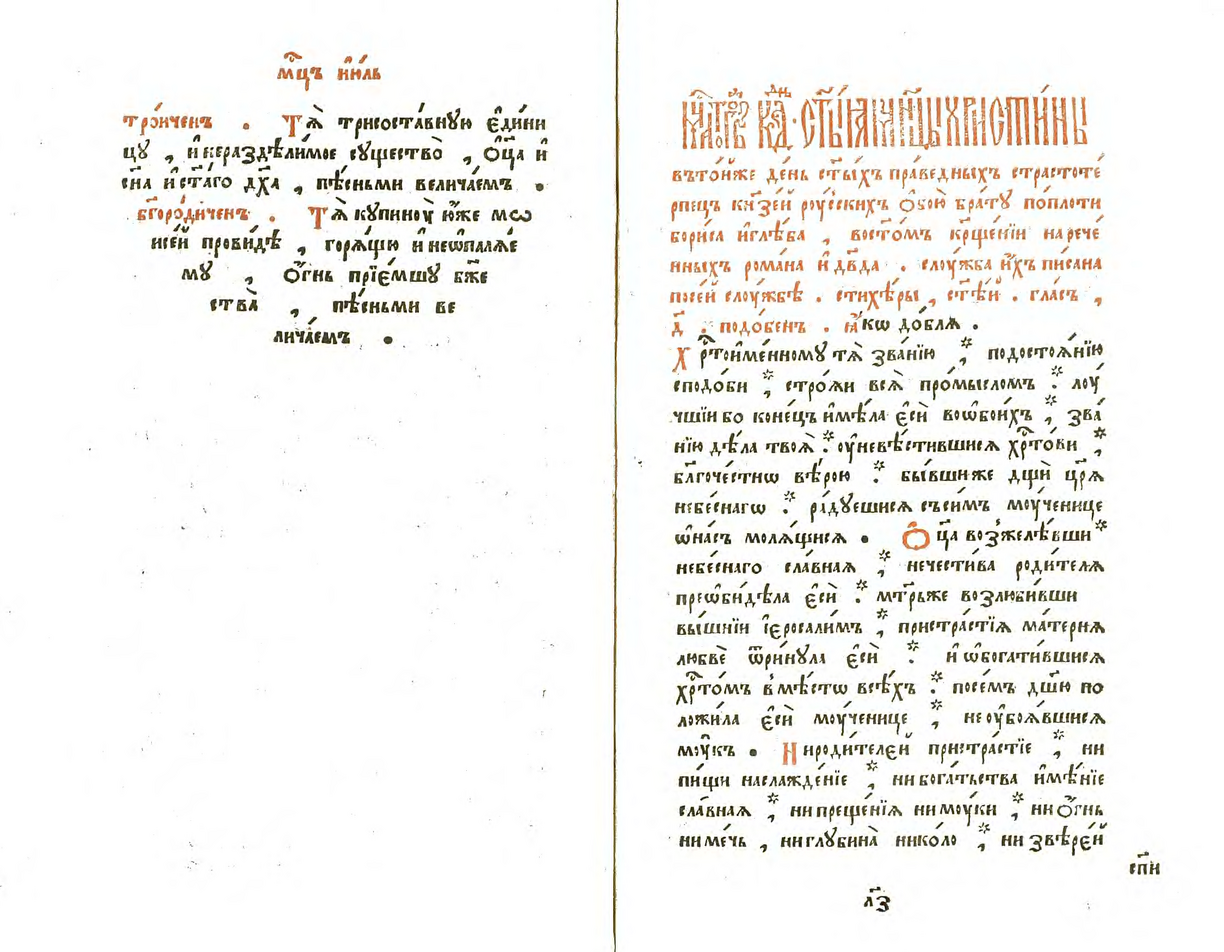 мц҇ъ и҆ю́ль
тро́иченъ . Тѧ̀ трисоста́вную є҆ди́ни
цу , и҆ нераздѣ́лимое существо̀ , О҆ц҃а и҆
сн҃а и҆ ст҃а́го дх҃а , пѣ́сньми велича́емъ .
бг҃оро́диченъ . Тѧ̀ купино́ꙋ ю҆́же мѡ
исе́й прови́дѣ , горѧ́щꙋю и҆ неѡ҆палѧ́е
му , О҆́гнь прїе́мшу бж҃е
ства̀ , пѣ́сньми ве
лича́емъ .
мц҇а то́гѡ, к҃д. ст҃ы́ѧ мч҃нцы христи́ны
въто́йже де́нь ст҃ы́хъ пра́ведныхъ страстоте́
рпецъ кнѧ҃зе́й роу́сскихъ О҆бою̀ бра́ту поплоти
бори́са и҆глѣ́ба , восто́мъ кр҃ще́нїи нарече́
нныхъ рома́на и҆ дв҃да . слоу́жба и҆́хъ писана
посе́й слоу́жбѣ . стихе́ры , ст҃ѣ́й . гла́съ ,
д҃ . подо́бенъ . ꙗ҆́кѡ до́блѧ .
Хр҇то́име́нному тѧ̀ зва́нїю , подостоѧ́нїю
сподо́би , стро́ѧи всѧ̀ про́мысломъ : лоу́
чшїи бо коне́цъ и҆мѣ́ла є҆сѝ воѡ҆бои́хъ , зва́
нїю дѣ́ла твоѧ̀ : оу҆невѣ́стившисѧ хр҇то́ви ,
бл҃гоче́стнѡ вѣ́рою : бы́вшиже дщѝ цр҃ѧ̀
небе́снагѡ : ра́дуешисѧ съси́мъ моу́ченице
ѡ҆на́съ молѧ́щисѧ . О҆ц҃а возжелѣ́вши
небе́снаго сла́внаѧ , нечести́ва роди́телѧ
преѡ҆би́дѣла є҆сѝ : мт҃рьже возлюби́вши
вы́шнїи і҆еросали́мъ , пристра́стїѧ ма́тернѧ
любвѐ ѿри́нула є҆сѝ : и҆ ѡ҆богати́вшисѧ
хр҇то́мъ вмѣ́стѡ всѣ́хъ : посе́мъ дш҃ю по
ложи́ла є҆сѝ моу́ченице , неоу҆боѧ́вшисѧ
моу́къ . Ниродителе́й пристра́стїе , ни
пи́щи наслажде́нїе , нибога́тьства и҆мѣ́нїе
сла́внаѧ , нипреще́нїѧ нимоу́ки , ниО҆́гнь
ниме́чь , ниглубина̀ нико́ло , ни ѕвѣре́й
сп҃и
л҃з